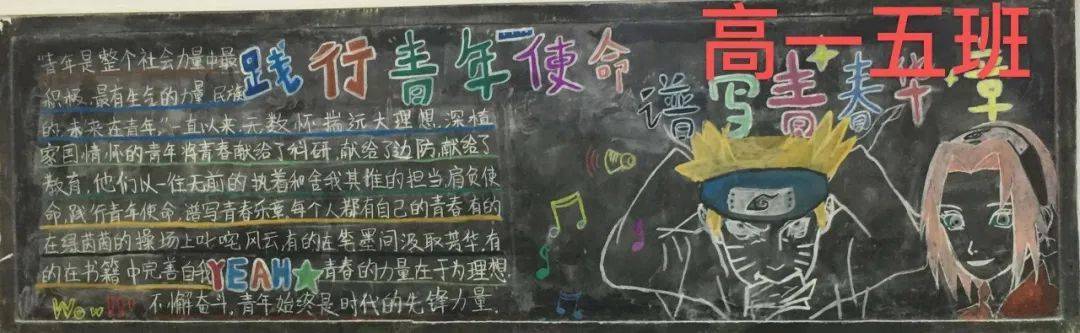 高一五班
践行青年使命
谱写青春华章
"青年是整个社会力量中最
积极、最有生气的力量,民族
的未来在青年,"一直以来,无数怀揣远大理想、深植
家国情怀的青年将青春献给了科研,献给了边防,献给了
教育,他们以一往无前的执着和舍我其谁的担当,肩负使
命,践行青年使命,谱写青春乐章,每个人都有自己的青春,有的
在绿茵茵的操场上叱咤风云,有的在笔墨间汲取芳华,有
的在书籍中完善自我 YEAH 青春的力量在于为理想
Wow 不懈奋斗,青年始终是时代的先锋力量.